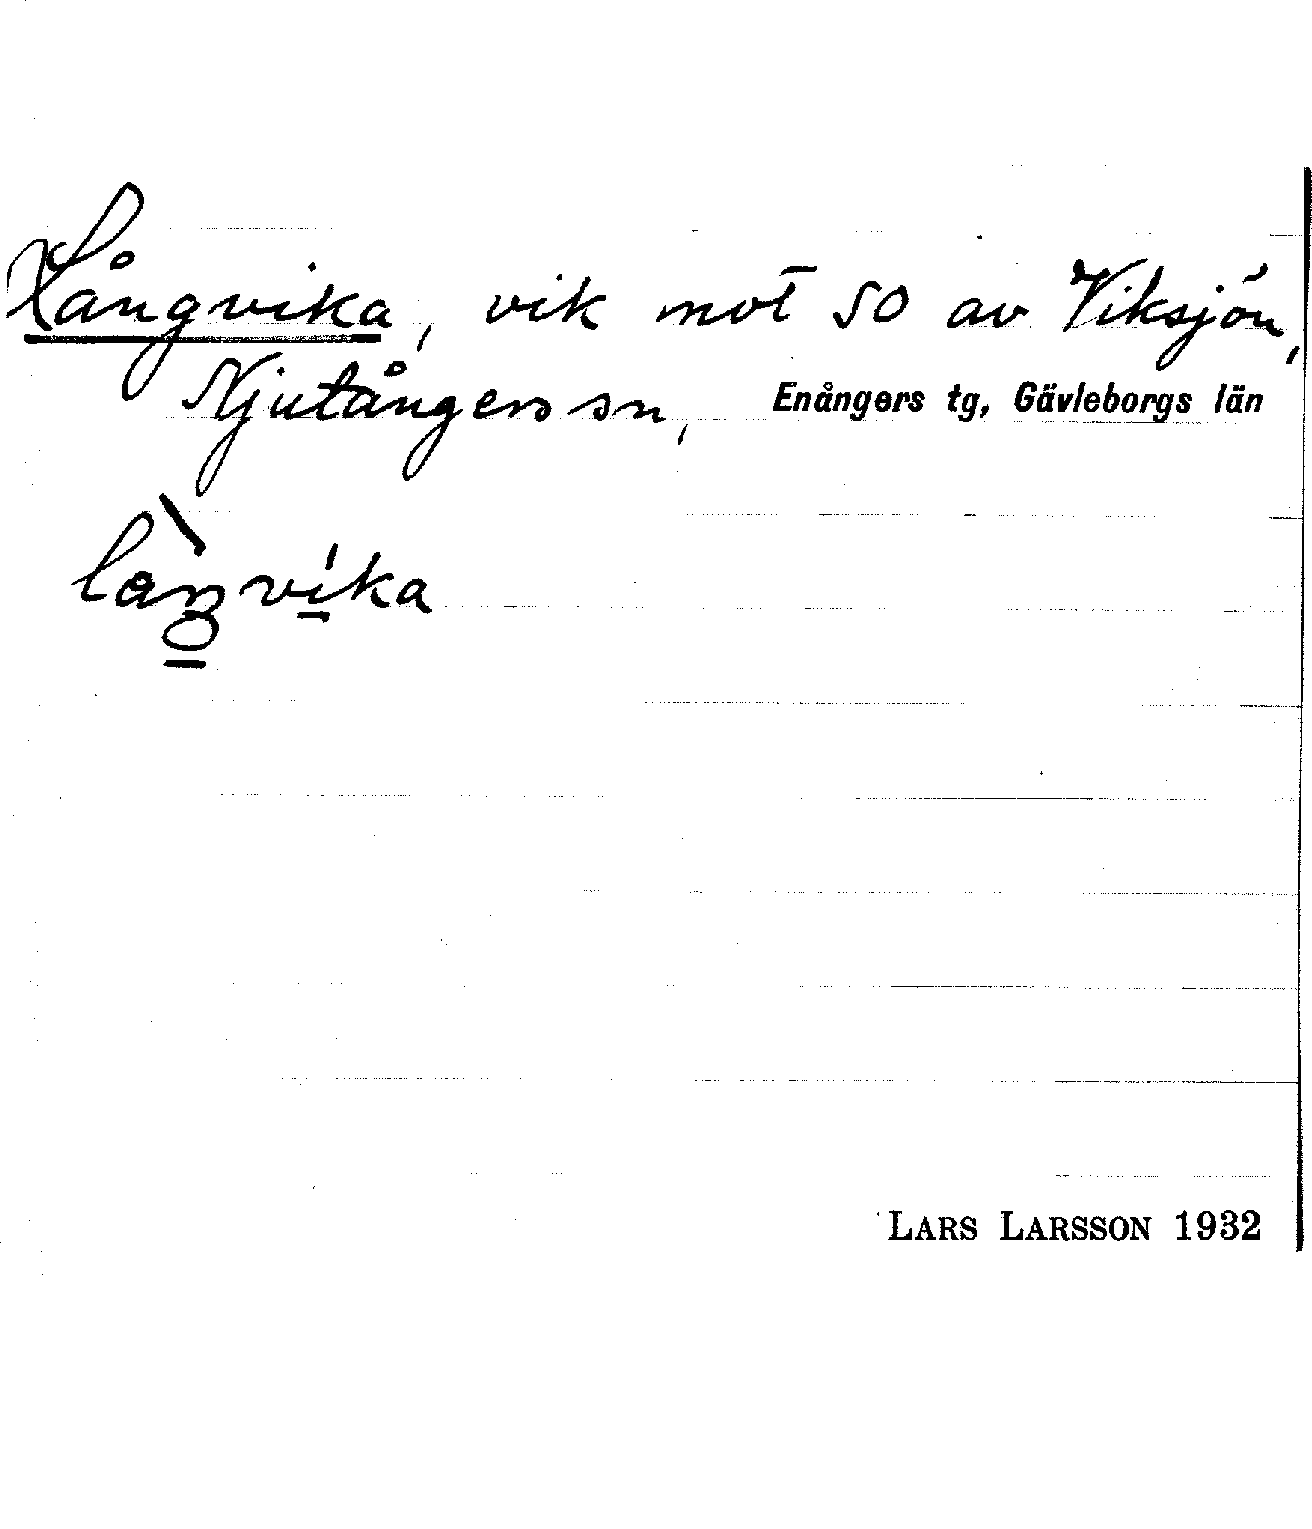 Långvika, vik mot SO av Viksjön,
Njutångers sn, Enångers tg, Gävleborgs län
làŋví̱ka
LARS LARSSON 1932